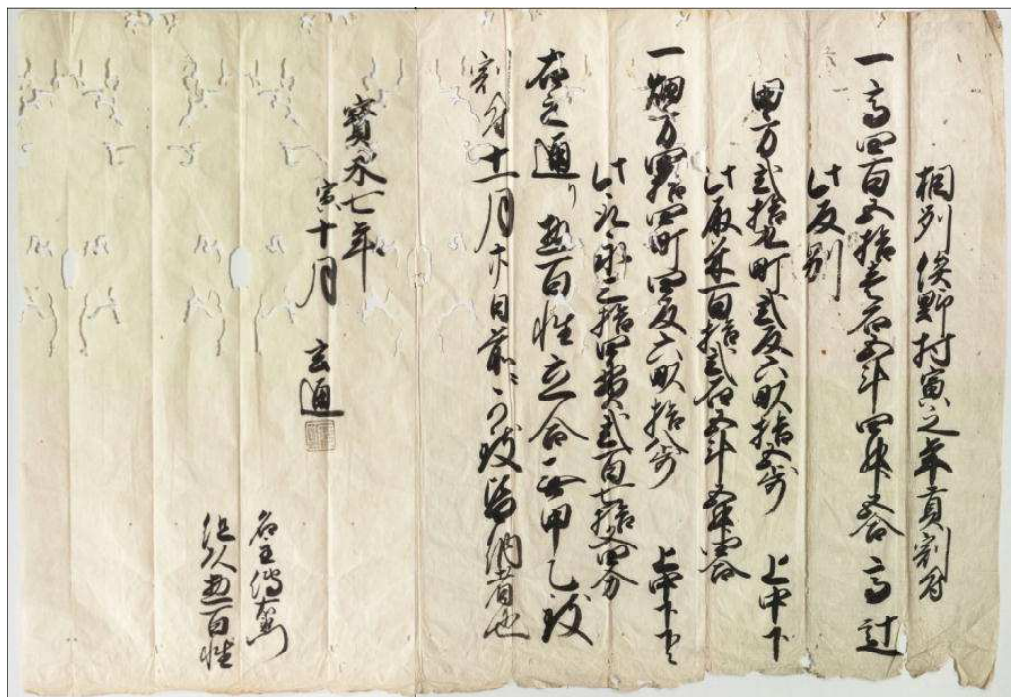 相州俣野村寅之年貢割付
一高四百五拾壱石五斗四升五合 高辻
此反別
田方弐拾九町弐反六畝拾五歩 上中下
此取米百拾弐石五斗五升壱合
一畑方四拾四町四反六畝拾歩 上中下下々
此取永三拾四貫弐百七拾四分
右之通り惣百性立合無甲乙致
割付十一月廿日前ニ可致皆納者也
寳永七年
寅十月 玄通
名主
組頭惣百性